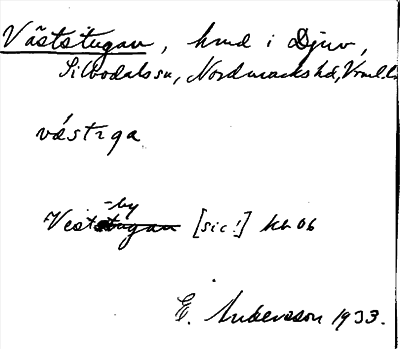 Väststugan, hmd i Djuv,
Silbodals sn, Nordmarks hd, Vrml.l.
vástᴈga
-by
Vests̶t̶u̶g̶a̶n̶ [sic!] kb 06
E. Andersson 1933.